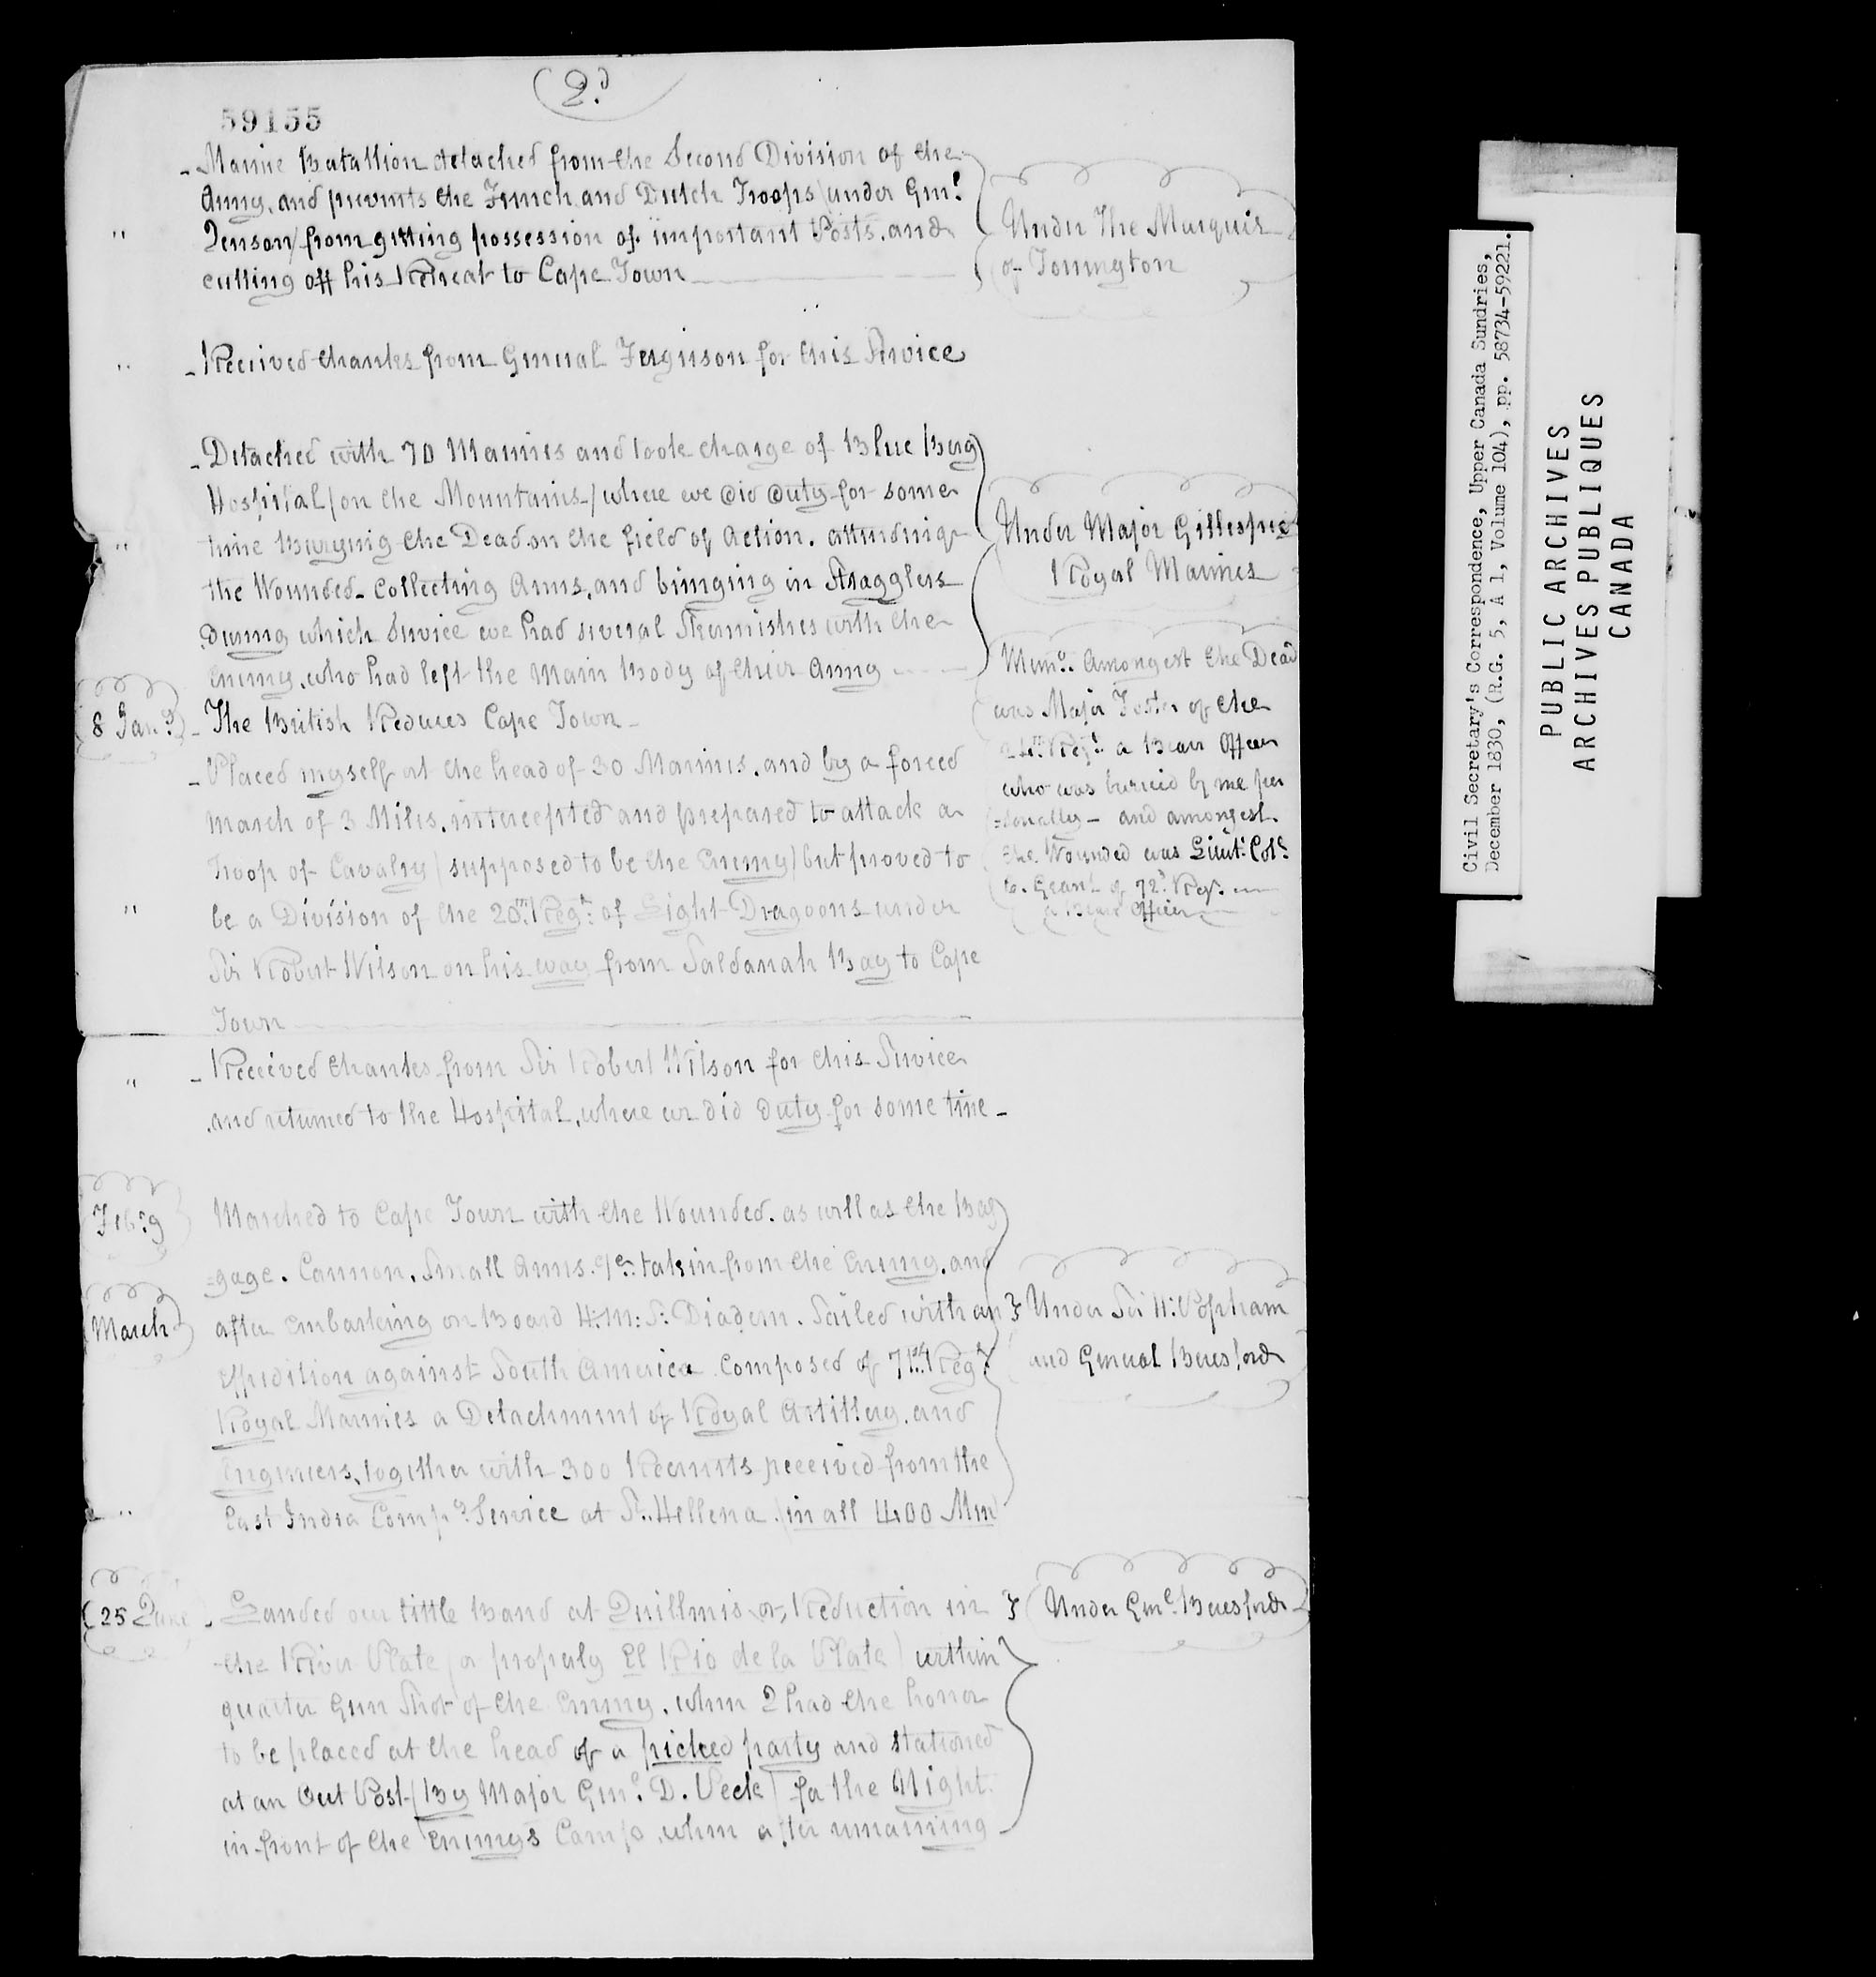 (2.d)
59155
- Marine Batallion detached from the Second Division of the
Army, and prevents the French and Dutch Troops (under Genl.
" Jenson) from gitting possession of important Posts, and
cutting off his Retreat to Cape Town
Under The Marquis
of Tonington
" - Received thanks from General Ferguson for this Service
- Detached with 70 Marines and took charge of Blue Berg
Hospital (on the Mountains) where we did duty for some
" time Burying the Dead on the field of Action, attending
the Wounded - Collecting Arms, and bringing in Stragglers
during which Service we had several Skirmishes with the
Enemy, who had left the Main Body of their Army
Under Major Gillespie
Royal Marines
8 Jany. - The British Reduces Cape Town -
- Placed myself at the head of 30 Marines, and by a forced
march of 3 Miles, intercepted and prepared to attack a
Troop of Cavalry (supposed to be the Enemy) but proved to
" be a Division of the 20th. Regt. of Light Dragoons under
Sir Robert Wilson on his way from Saldanah Bay to Cape
Town
Memo. Amongest the Dead
was Major Foster of the
24th Regt. a Brave Officer
who was burried by me per
=sonally - and amongest
the Wounded was Lieut. Coll.
C. Grant of 72d. Regt.
a Brave Officer
" - Received thanks from Sir Robert Wilson for this Service
and returned to the Hospital, where we did duty for some time -
Feby. Marched to Cape Town with the Wounded, as well as the Bag
=gage, Cannon, Small Arms, &c. taken from the Enemy, and
March after Embarking on Board H:M:S: Diadem. Sailed with an
Expedition against South America composed of 71st. Regt.
Royal Marines a Detachment of Royal Artillery, and
Engineers, together with 300 Recruits received from the
" East India Compy. Service at St. Hellena (in all 400 Men)
Under Sir H: Popham
and General Beresford
25 June - Landed our little Band at Quillmis or Reduction in
the River Plate (or properly El Rio de la Plate) within
quarter Gun Shot of the Enemy, when I had the honor
to be placed at the head of a picked party and stationed
at an Out Post (By Major Genl. D. Peck) for the Night
in front of the Enemys Camp, when after remaining
Under Genl. Beresford
Civil Secretary's Correspondence, Upper Canada Sundries,
December 1830, (R.G. 5, A 1, Volume 104), pp. 58734-59221.
PUBLIC ARCHIVES
ARCHIVES PUBLIQUES
CANADA